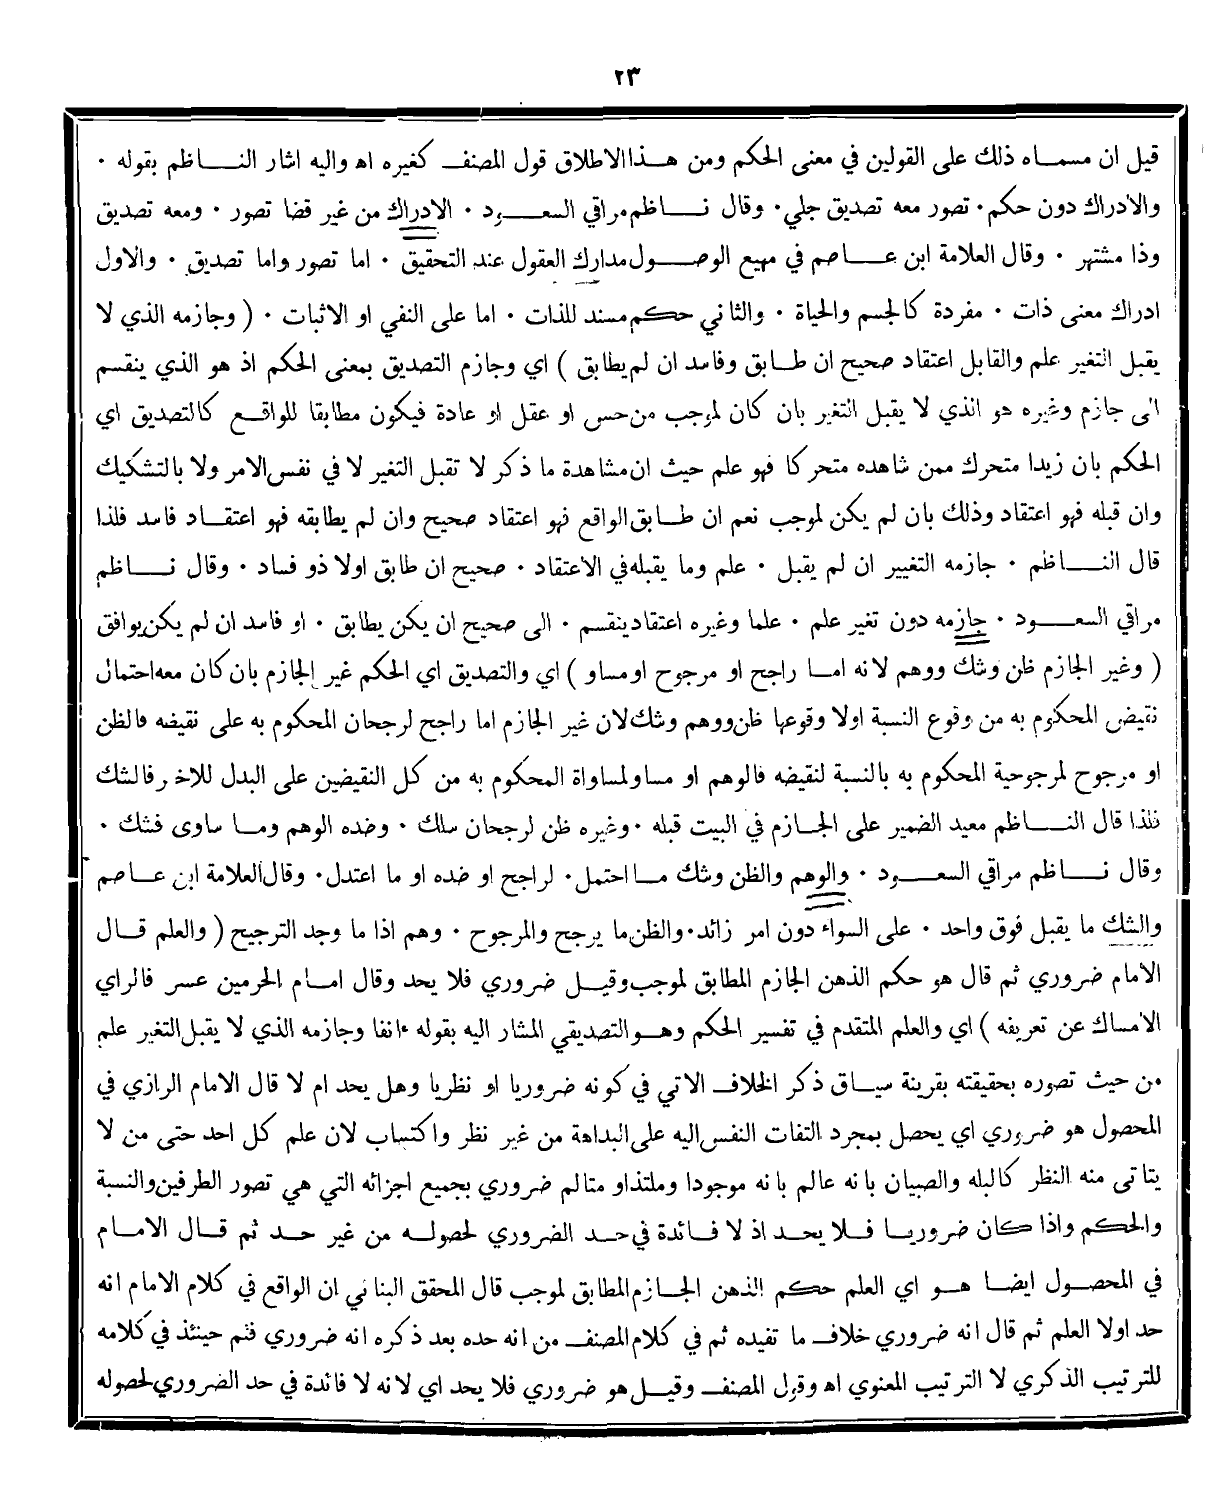 ٢٣
قيل ان مسماه ذلك على القولين في معنى الحكم ومن هذا الاطلاق قول المصنف كغيره اه واليه اشار الناظم بقوله ٠
والادراك دون حكم ٠ تصور معه تصديق جلي ٠ وقال ناظم مراقي السعود ٠ الادراك من غير قضا تصور ٠ ومعه تصديق
وذا مشتهر ٠ وقال العلامة ابن عاصم في مهيع الوصول مدارك العقول عند التحقيق ٠ اما تصور واما تصديق ٠ والاول
ادراك معنى ذات ٠ مفردة كالجسم والحياة ٠ والثاني حكم مسند للذات ٠ اما على النفي او الاثبات ٠ ( وجازمه الذي لا
يقبل التغير علم والقابل اعتقاد صحيح ان طابق وفاسد ان لم يطابق ) اي وجازم التصديق بمعنى الحكم اذ هو الذي ينقسم
الى جازم وغيره هو الذي لا يقبل التغير بان كان لموجب من حس او عقل او عادة فيكون مطابقا للواقع كالتصديق اي
الحكم بان زيدا متحرك ممن شاهده متحركا فهو علم حيث ان مشاهدة ما ذكر لا تقبل التغير لا في نفس الامر ولا بالتشكيك
وان قبله فهو اعتقاد وذلك بان لم يكن لموجب نعم ان طابق الواقع فهو اعتقاد صحيح وان لم يطابقه فهو اعتقاد فاسد فلذا
قال الناظم ٠ جازمه التغيير ان لم يقبل ٠ علم وما يقبله في الاعتقاد ٠ صحيح ان طابق اولا ذو فساد ٠ وقال ناظم
مراقي السعود ٠ جازمه دون تغير علم ٠ علما وغيره اعتقاد ينقسم ٠ الى صحيح ان يكن يطابق ٠ او فاسد ان لم يكن يوافق
( وغير الجازم ظن وشك ووهم لانه اما راجح او مرجوح او مساو ) اي والتصديق اي الحكم غير الجازم بان كان معه احتمال
نقيض المحكوم به من وقوع النسبة اولا وقوعها ظن ووهم وشك لان غير الجازم اما راجح لرجحان المحكوم به على نقيضه فالظن
او مرجوح لمرجوحية المحكوم به بالنسبة لنقيضه فالوهم او مساو لمساواة المحكوم به من كل النقيضين على البدل للاخر فالشك
فلذا قال الناظم معيد الضمير على الجازم في البيت قبله ٠ وغيره ظن لرجحان سلك ٠ وضده الوهم وما ساوى فشك ٠
وقال ناظم مراقي السعود ٠ والوهم والظن وشك ما احتمل ٠ لراجح او ضده او ما اعتدل ٠ وقال العلامة ابن عاصم
والشك ما يقبل فوق واحد ٠ على السواء دون امر زائد ٠ والظن ما يرجح والمرجوح ٠ وهم اذا ما وجد الترجيح ( والعلم قال
الامام ضروري ثم قال هو حكم الذهن الجازم المطابق لموجب وقيل ضروري فلا يحد وقال امام الحرمين عسر فالراي
الامساك عن تعريفه ) اي والعلم المتقدم في تفسير الحكم وهو التصديقي المشار اليه بقوله ءانفا وجازمه الذي لا يقبل التغير علم
من حيث تصوره بحقيقته بقرينة سياق ذكر الخلاف الاتي في كونه ضروريا او نظريا وهل يحد ام لا قال الامام الرازي في
المحصول هو ضروري اي يحصل بمجرد التفات النفس اليه على البداهة من غير نظر واكتساب لان علم كل احد حتى من لا
يتاتى منه النظر كالبله والصبيان بانه عالم بانه موجودا وملتذاو متالم ضروري بجميع اجزائه التي هي تصور الطرفين والنسبة
والحكم واذا كان ضروريا فلا يحد اذ لا فائدة في حد الضروري لحصوله من غير حد ثم قال الامام
في المحصول ايضا هو اي العلم حكم الذهن الجازم المطابق لموجب قال المحقق البناني ان الواقع في كلام الامام انه
حد اولا العلم ثم قال انه ضروري خلاف ما تفيده ثم في كلام المصنف من انه حده بعد ذكره انه ضروري فثم حينئذ في كلامه
للترتيب الذكري لا الترتيب المعنوي اه وقول المصنف وقيل هو ضروري فلا يحد اي لانه لا فائدة في حد الضروري لحصوله